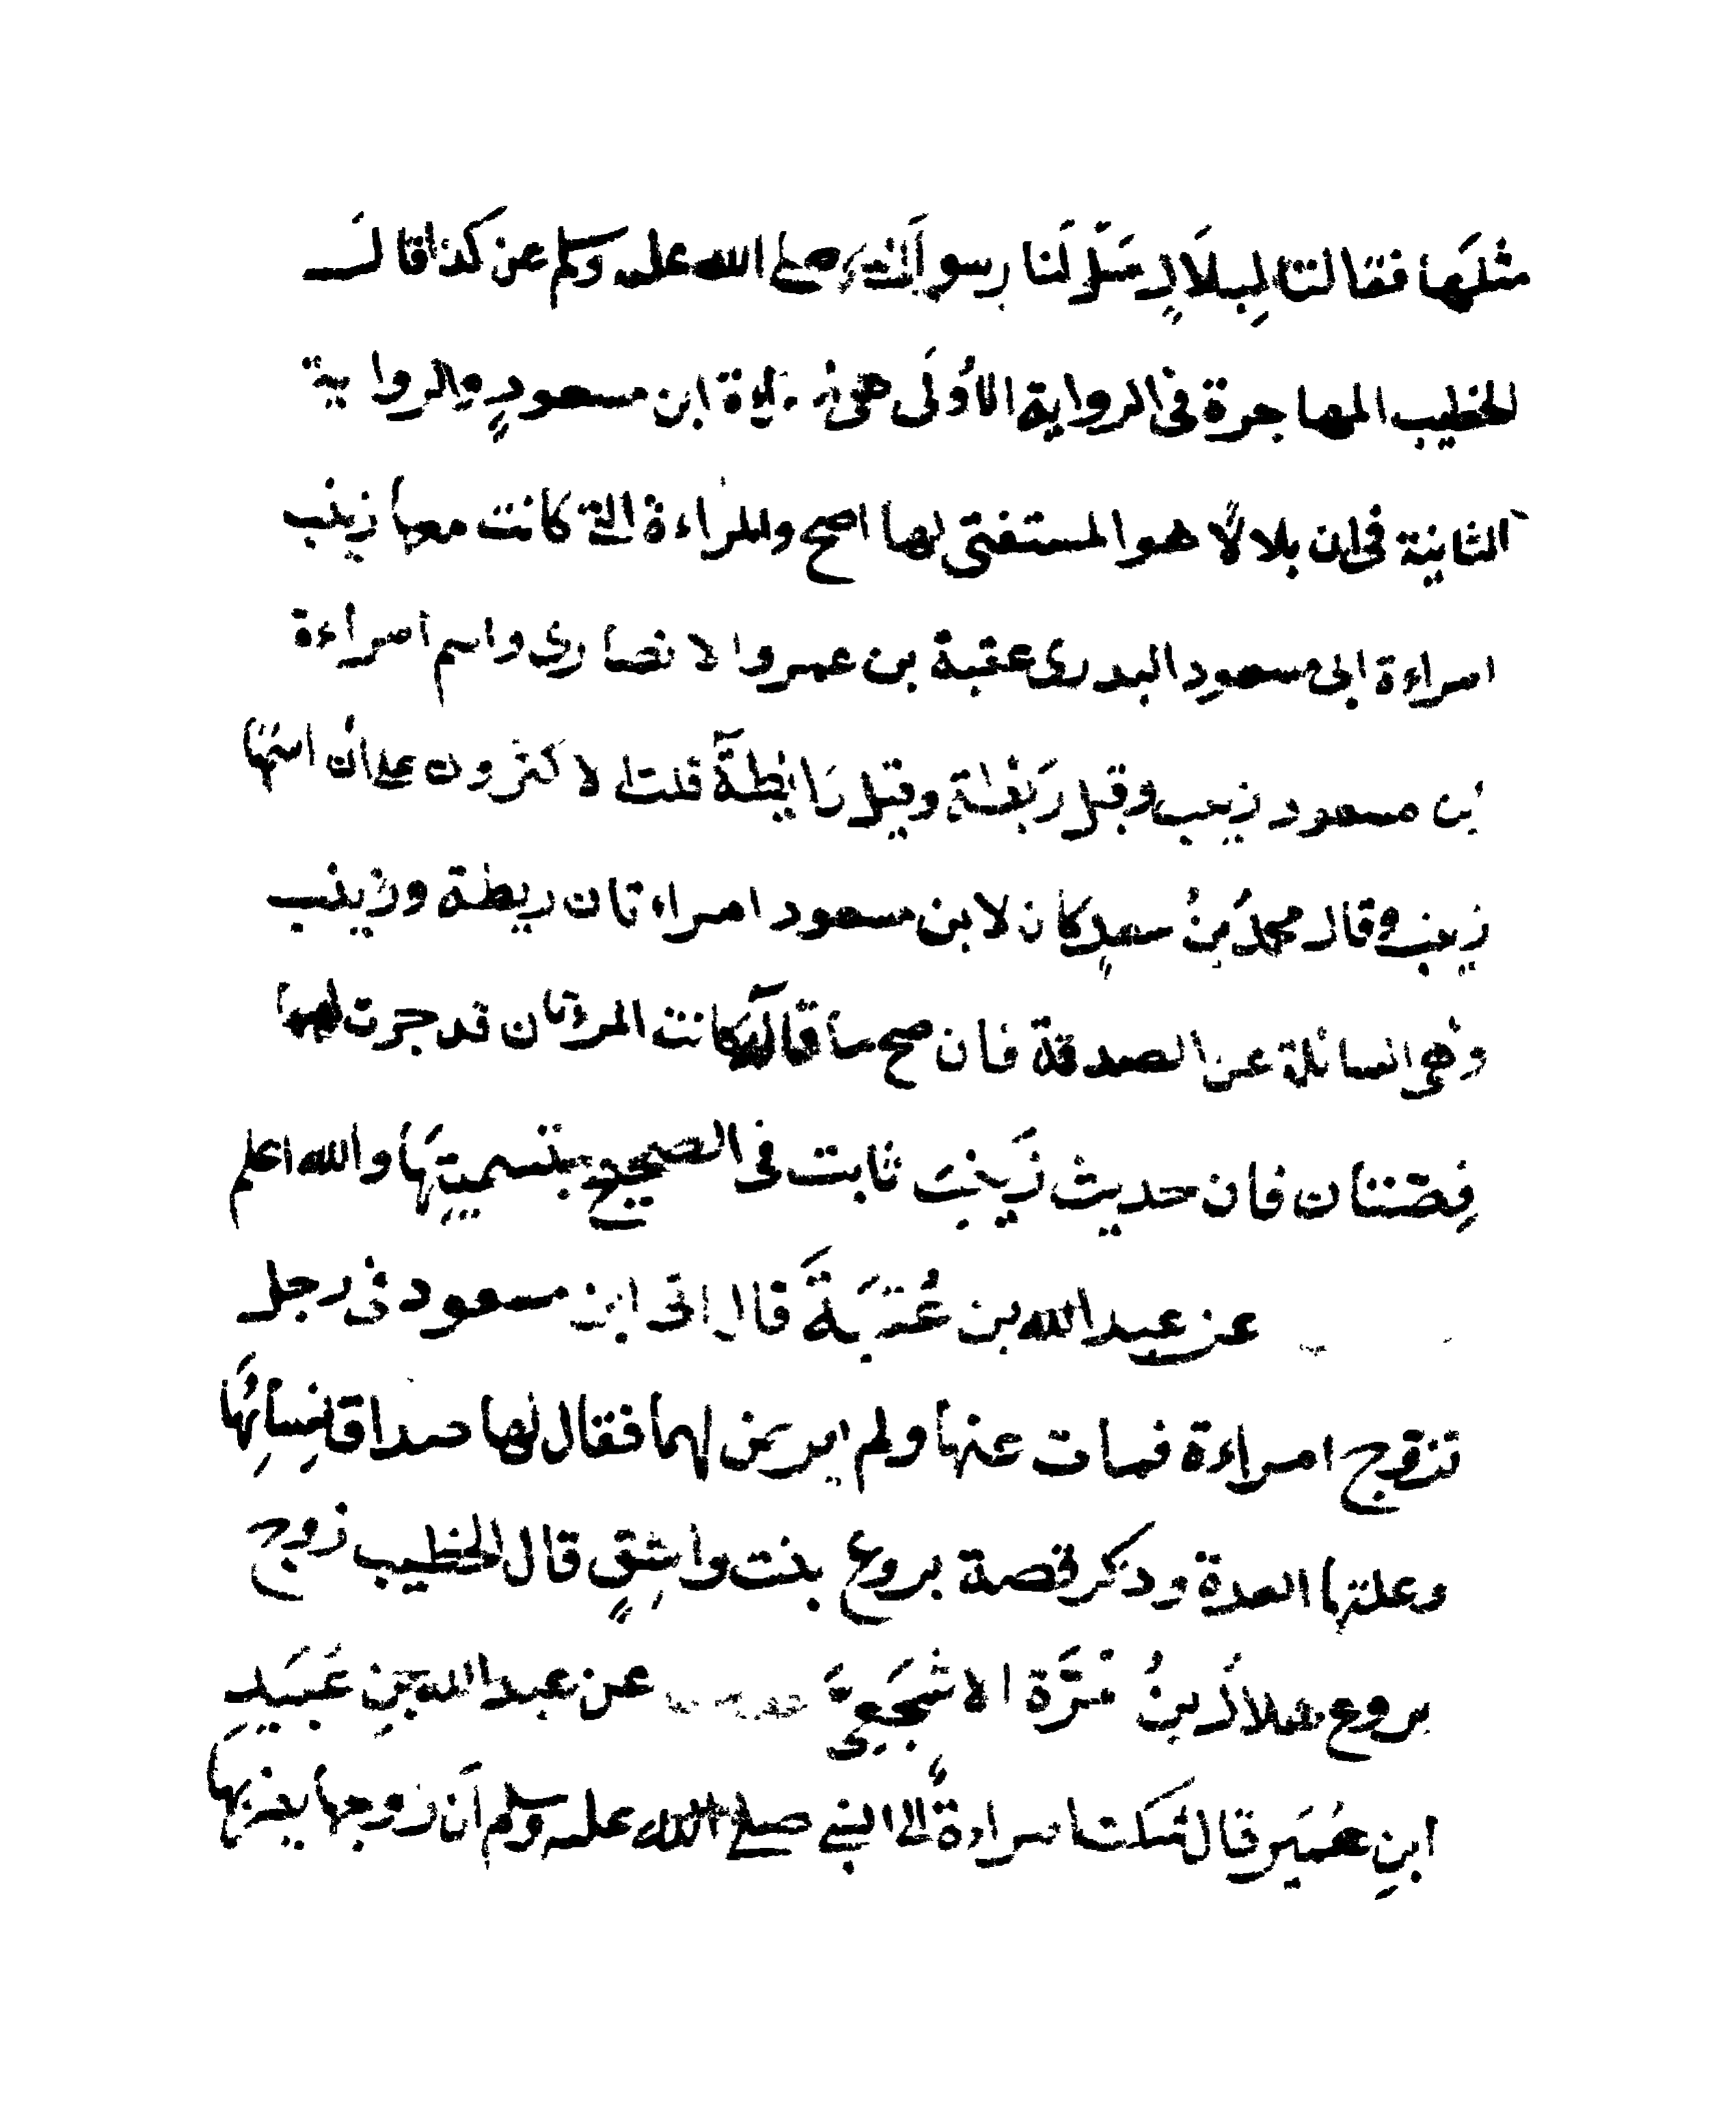 مثلَها فقالتا لِبلَالٍ سَلّ لَنا رسول الله صلى الله عليه وسلم عن كذا قال
الخطيب المهاجرة فى الرواية الأُولَى هى امراءة ابن مسعودٍ والرواية
الثانية فى ان بلالًا هو المستفتى لها اصح والمراءة التى كانت معها زينب
امراءة ابى مسعود البدرى عقبة بن عمرو الانصارى واسم امراءة
ابن مسعود زينب وقيل رَيْطة وقيل رَايِطَة قلت الاكثرون على ان اسمها
زينب وقال محمدُ بنُ سعدٍ كان لابن مسعود امراءتان ريطة وزينب
وهى السائلة عن الصدقة فان صح ما قاله كانت المرءتان قد جرت لهما
قِصّتان فان حديث زَينبَ ثابت فى الصحيح بتسميتِهَا والله اعلم
عن عبد الله بن عُتبَةَ قال اتى ابن مسعود فى رجل
تزوج امراءة فمات عنها ولم يفرض لها فقال لها صداق نِسائِهَا
وعليها العدة وذكر قصة بروع بنت واشِقٍ قال الخطيب زوج
بروع هلالُ بنُ مُرَّة الاشجَعِىّ عن عبد الله بنِ عُبَيدِ
ابنِ عُمَير قال شكت امراءةٌ الى النبى صلى الله عليه وسلم أن زوجها يضربها